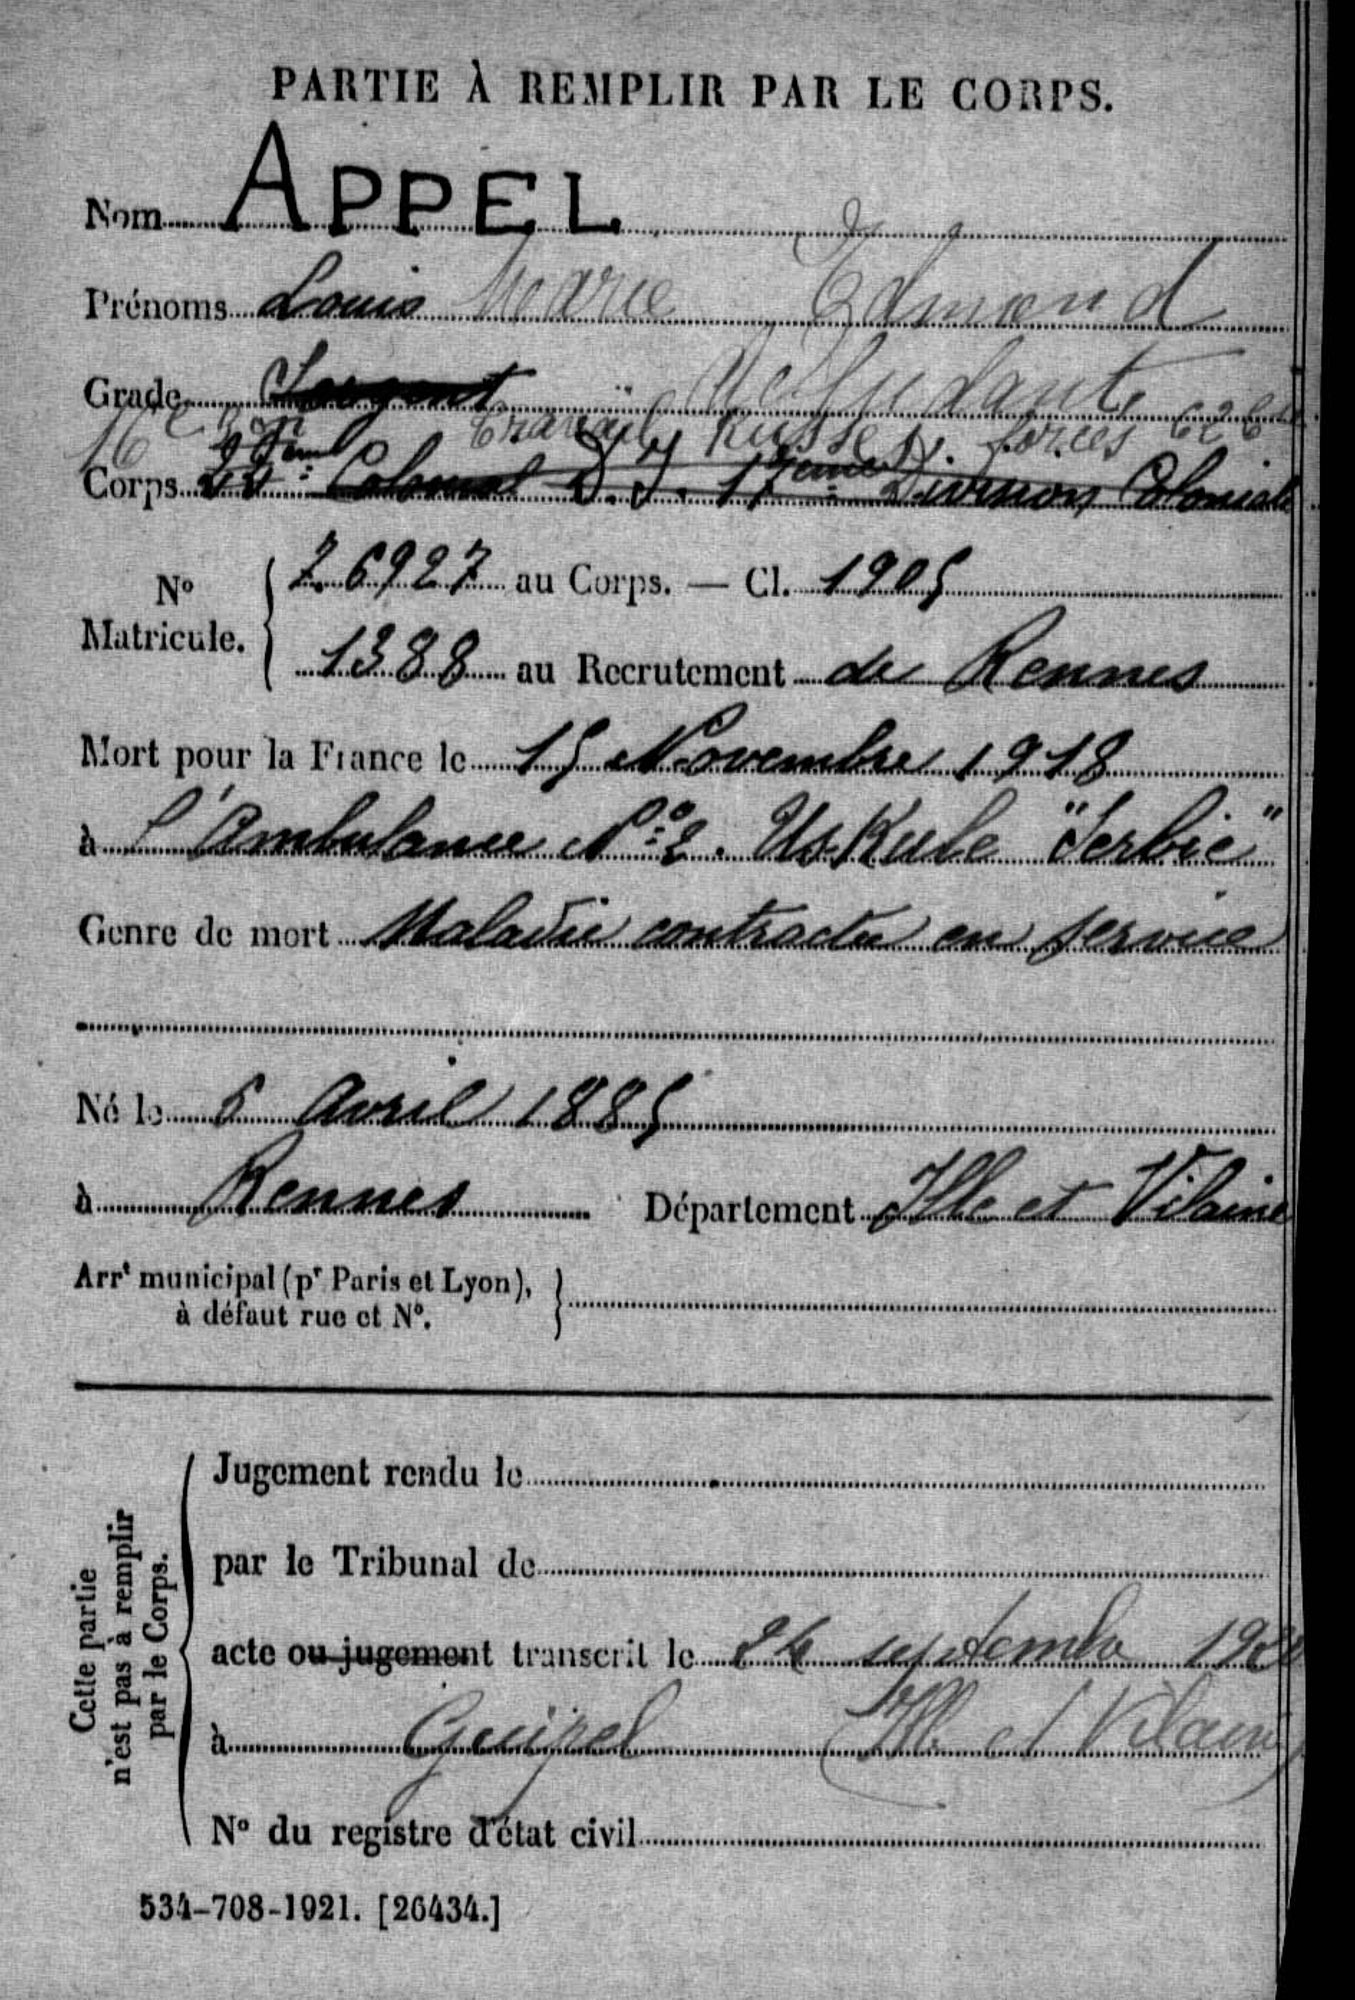 PARTIE À REMPLIR PAR LE CORPS.
Nom APPEL
Prénoms Louis Marie Edmond
Grade Sergent Adjudant
16e Bon Travail Russes forces
Corps Colonial D.I. 17ème Division Coloniale
No Matricule. 26927 au Corps. — Cl. 1905
1388 au Recrutement de Rennes
Mort pour la France le 15 Novembre 1918
à l'Ambulance No 2. Uskule "Serbie"
Genre de mort Maladie contractée en service
Né le 6 Avril 1885
à Rennes Département Ille et Vilaine
Arrt municipal (pr Paris et Lyon),
à défaut rue et No.
Cette partie
n'est pas à remplir
par le Corps.
Jugement rendu le
par le Tribunal de
acte ou jugement transcrit le 24 septembre 1920
à Guipel (Ille et Vilaine)
No du registre d'état civil
534-708-1921. [26434.]